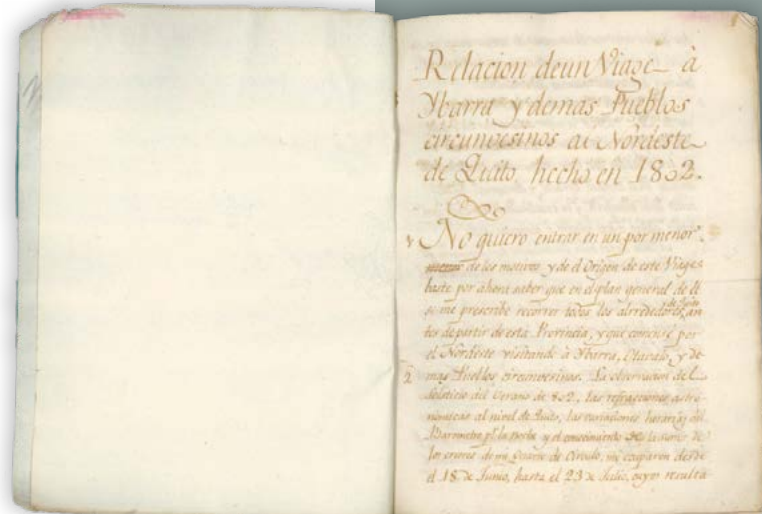 Relacion deun Viage à
Ybarra y demas Pueblos
circunvesinos al Nordeste
de Quito, hecho en 1802.
1 No quiero entrar en un por menor
de los motivos y de el Origen de este Viage:
baste por ahora saber que en el plan general de él
se me prescribe recorrer todos los alrrededores de Quito an
tes de partir de esta Provincia, y que comensé por
el Nordeste visitando à Ybarra, Otavalo, y de
2 mas Pueblos circunvesinos. La observacion del
Solsticio del Verano de 802, las refracciones astro
nomicas al nivel de Quito, las variaciones horarias del
Barometro pr. la noche y el conocimiento de
los errores de mi Quarto de Circulo, me ocuparon desde
el 18 de Junio, hasta el 23 de Julio, cuyos resulta